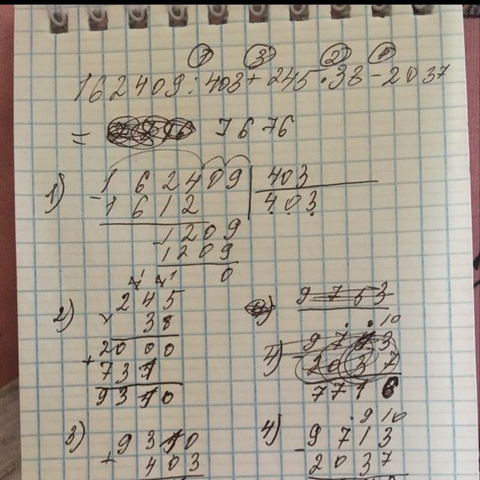 1 3 2 4
162409 : 403 + 245 · 38 - 2037
= 7676
1) 162409 | 403
- 1612 | 403
- 1209
1209
0
2) 245
× 38
+ 2000
731
9310
9753
4) 9713
- 2037
7716
3) 9310
+ 403
4) 9713
- 2037